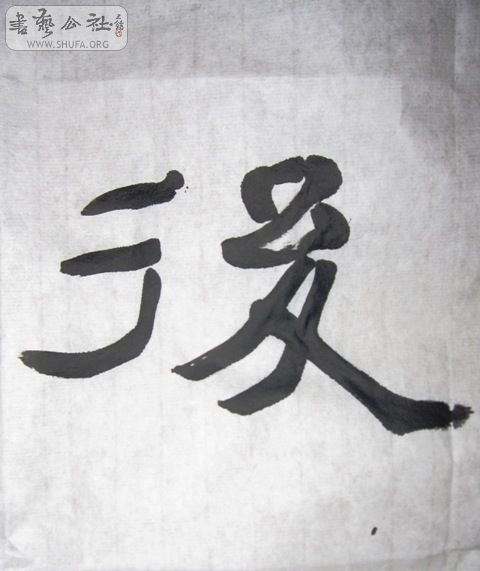 書藝公社
WWW.SHUFA.ORG
後